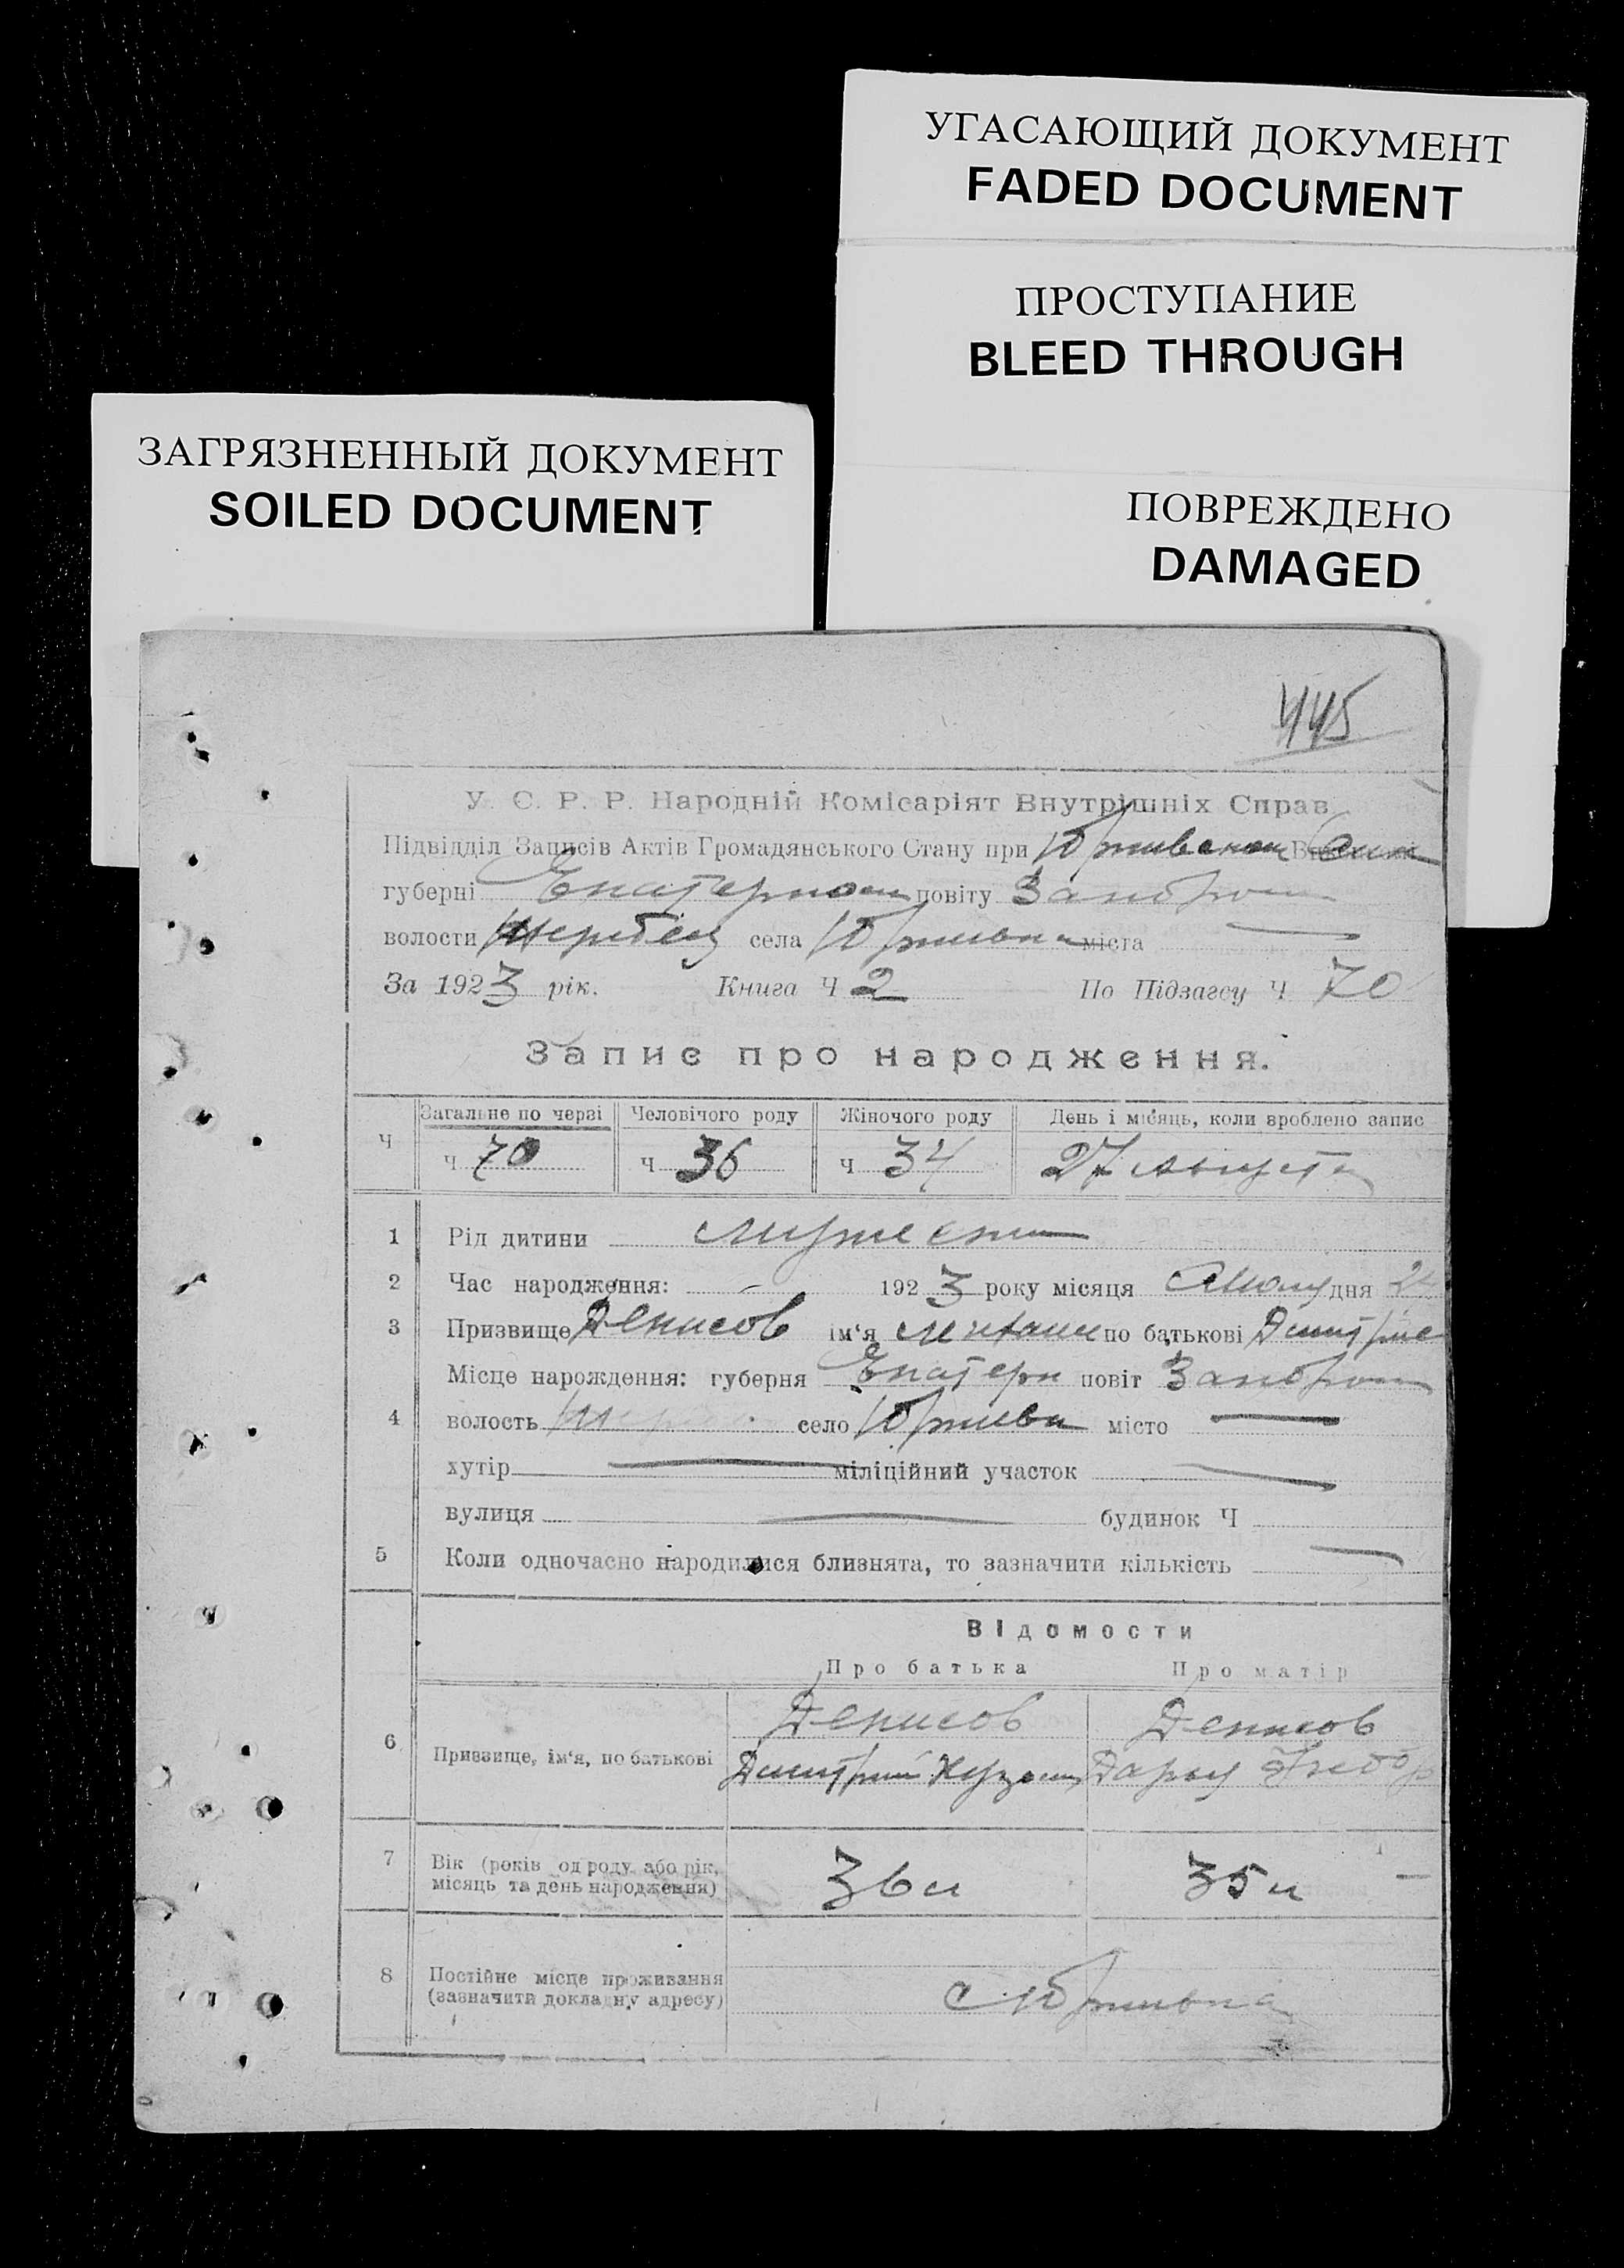 УГАСАЮЩИЙ ДОКУМЕНТ
FADED DOCUMENT
ПРОСТУПАНИЕ
BLEED THROUGH
ЗАГРЯЗНЕННЫЙ ДОКУМЕНТ
SOILED DOCUMENT
ПОВРЕЖДЕНО
DAMAGED
445
У. С. Р. Р. Народній Комісаріят Внутрішніх Справ
Підвідділ Записів Актів Громадянського Стану при
губерні Екатерин повіту Запорож
волости села міста
За 1923 рік. Книга Ч 2 По Підзагсу Ч 70
Запис про народження.
Ч Загальне по черзі Человічого роду Жіночого роду День і місяць, коли зроблено запис
Ч 70 Ч 36 Ч 34 27 августа
1 Рід дитини мужеск
2 Час народження: 1923 року місяця дня
3 Призвище Денисов ім'я по батькові
Місце народження: губерня Екатерин повіт Запорож
4 волость село місто —
хутір — міліційний участок —
вулиця — будинок Ч
5 Коли одночасно народилися близнята, то зазначити кількість —
Відомости
Про батька Про матір
Денисов Денисов
6 Призвище, ім'я, по батькові Дмитрий Дарья
7 Вік (років од роду або рік, 36 л 35 л —
місяць та день народження)
8 Постійне місце проживання
(зазначити докладну адресу) с